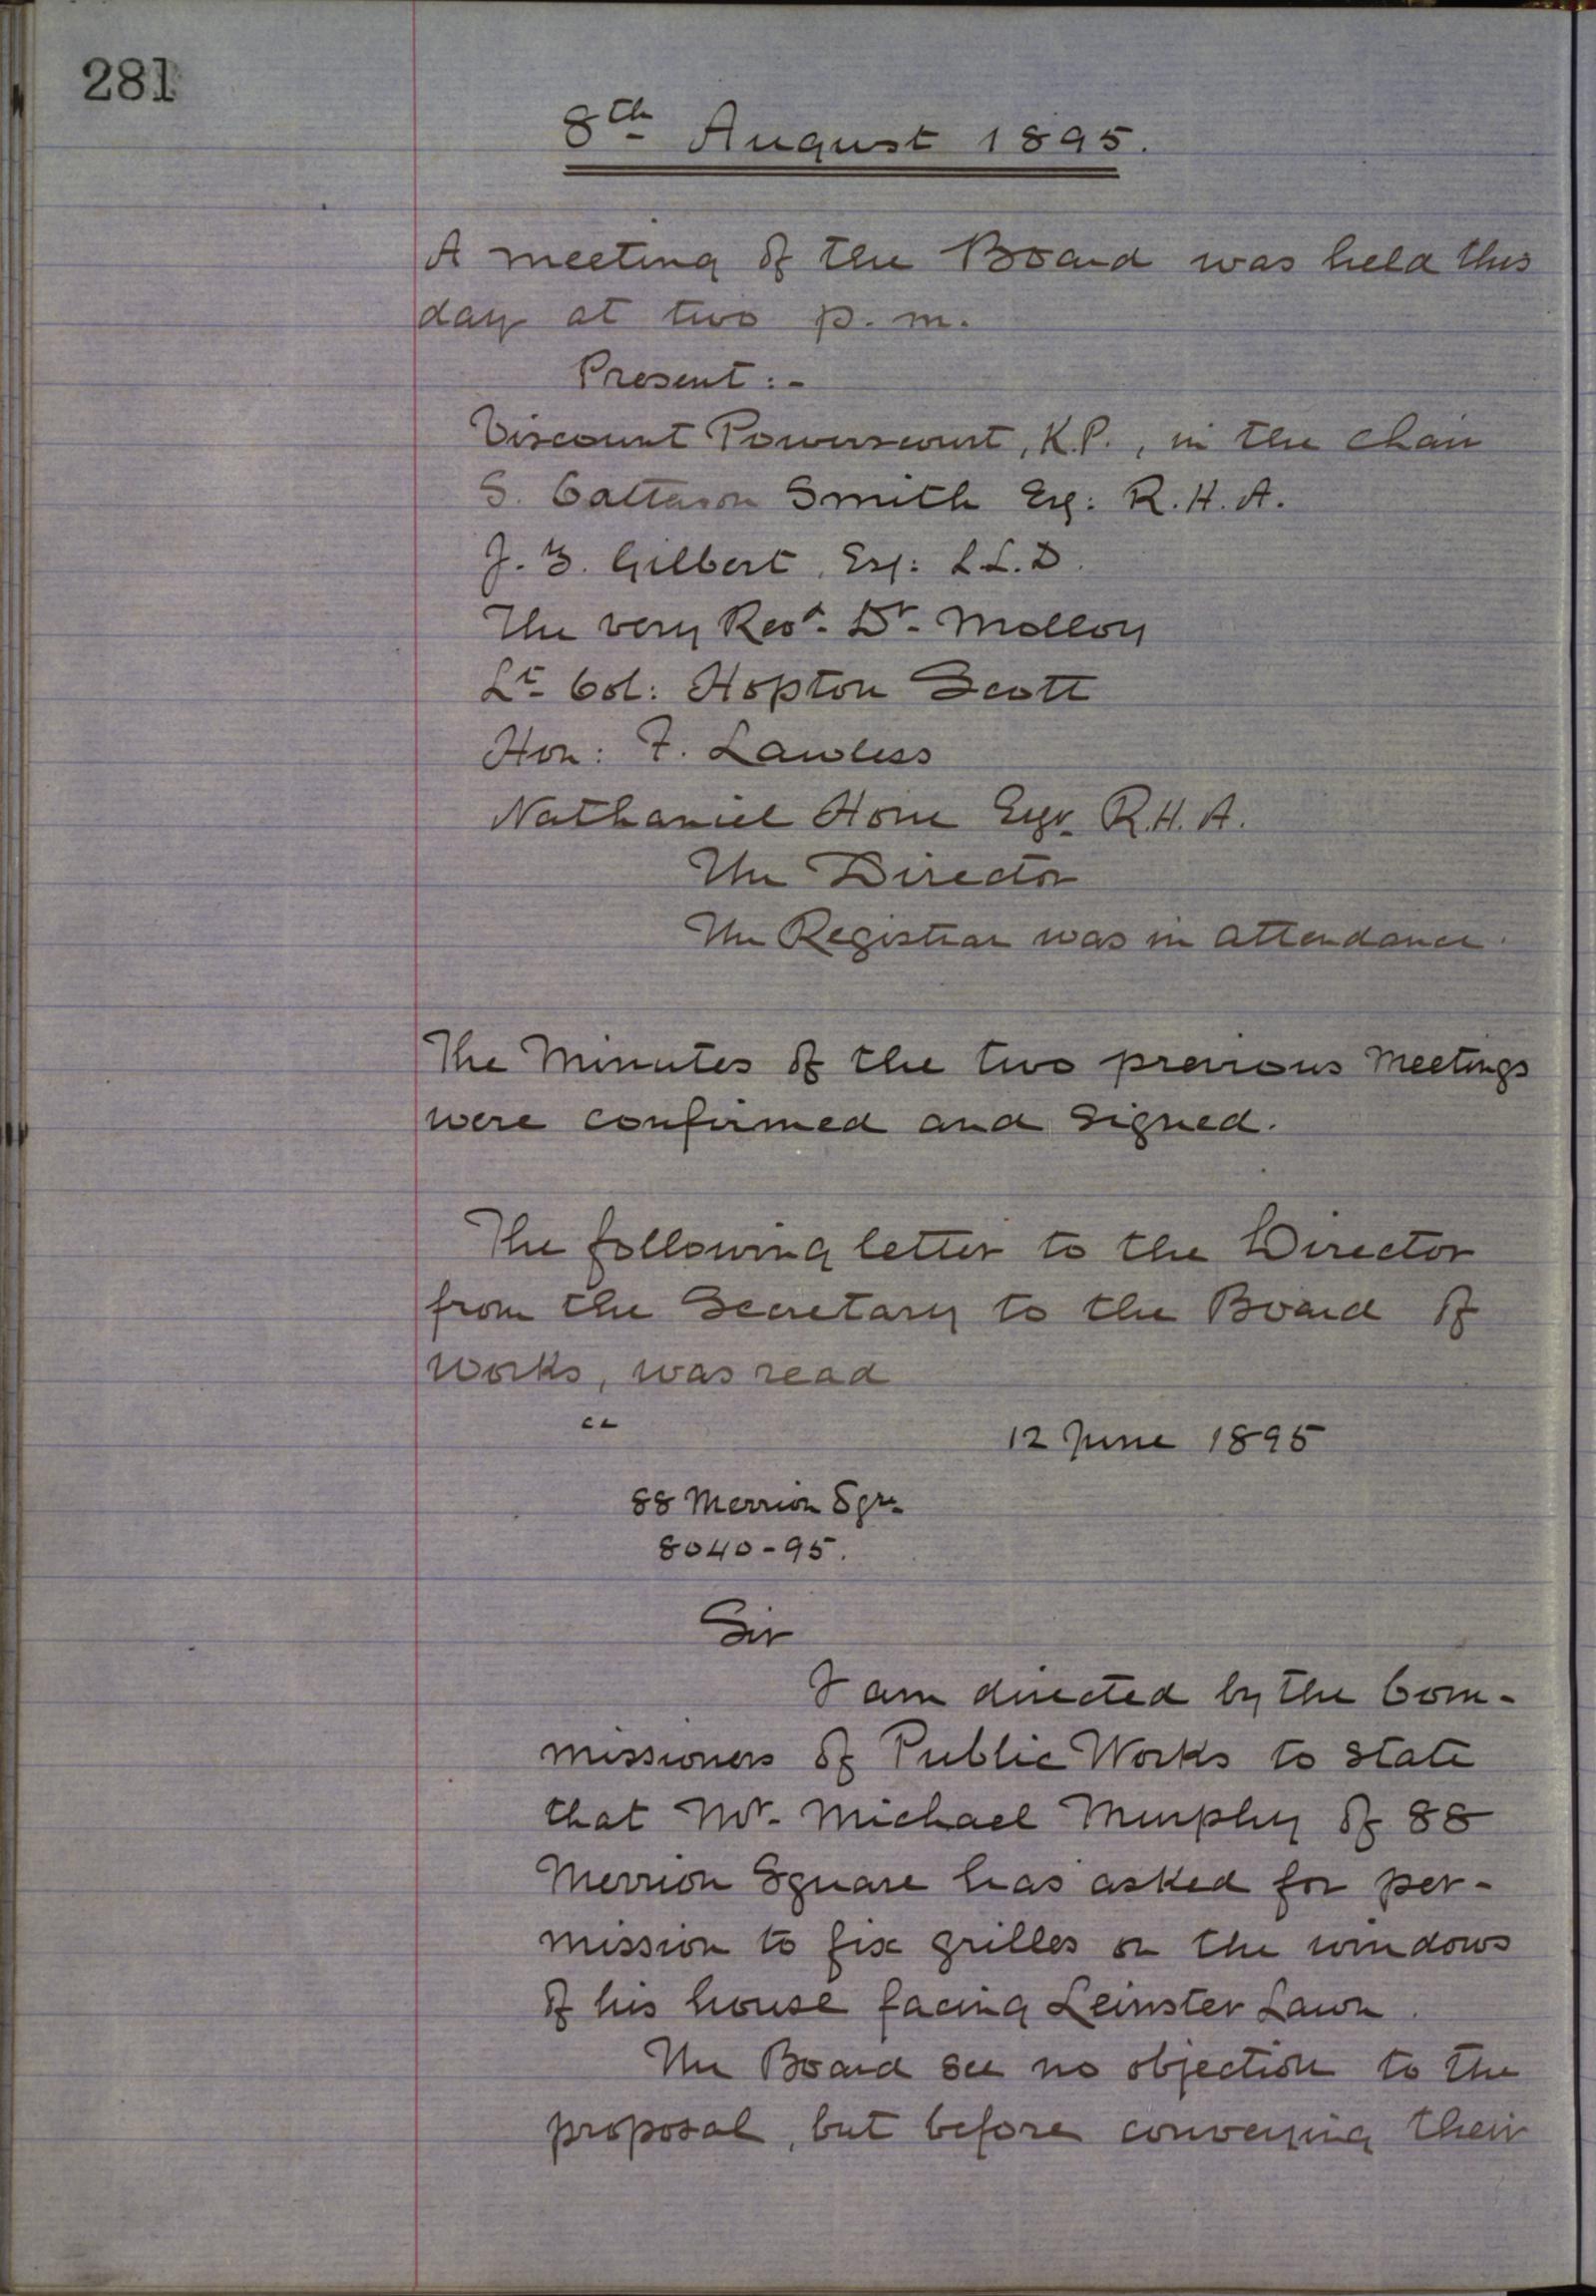 281
8th August 1895.
A meeting of the Board was held this
day at two p.m.
Present:-
Viscount Powerscourt, K.P., in the chair
S. Catterson Smith Esq: R.H.A.
J. T. Gilbert, Esq: LL.D.
The very Revd. Dr. Molloy
Lt. Col: Hopton Scott
Hon: F. Lawless
Nathaniel Hone Esqr. R.H.A.
The Director
The Registrar was in attendance.
The Minutes of the two previous Meetings
were confirmed and signed.
The following letter to the Director
from the Secretary to the Board of
Works, was read
"
12 June 1895
88 Merrion Sqre.
8040-95.
Sir
I am directed by the Com-
missioners of Public Works to state
that Mr. Michael Murphy of 88
Merrion Square has asked for per-
mission to fix grilles on the windows
of his house facing Leinster Lawn.
The Board see no objection to the
proposal, but before conveying their